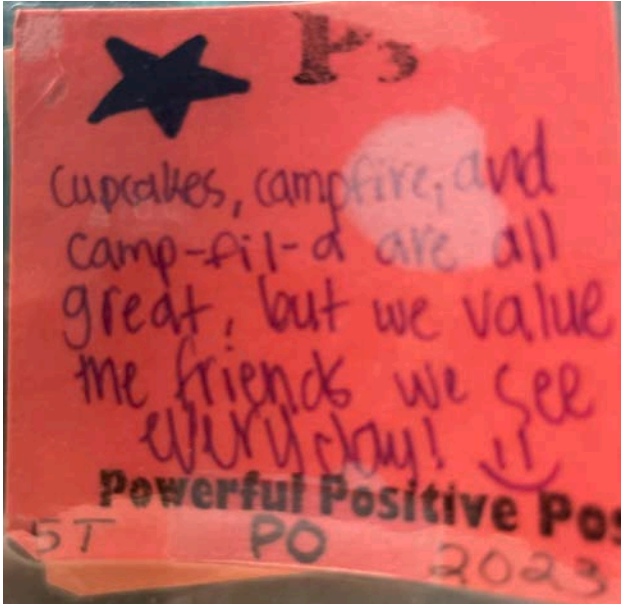 P3
cupcakes, campfire, and
camp-fil-a are all
great, but we value
the friends we see
everyday!
Powerful Positive Pos
5T PO 2023